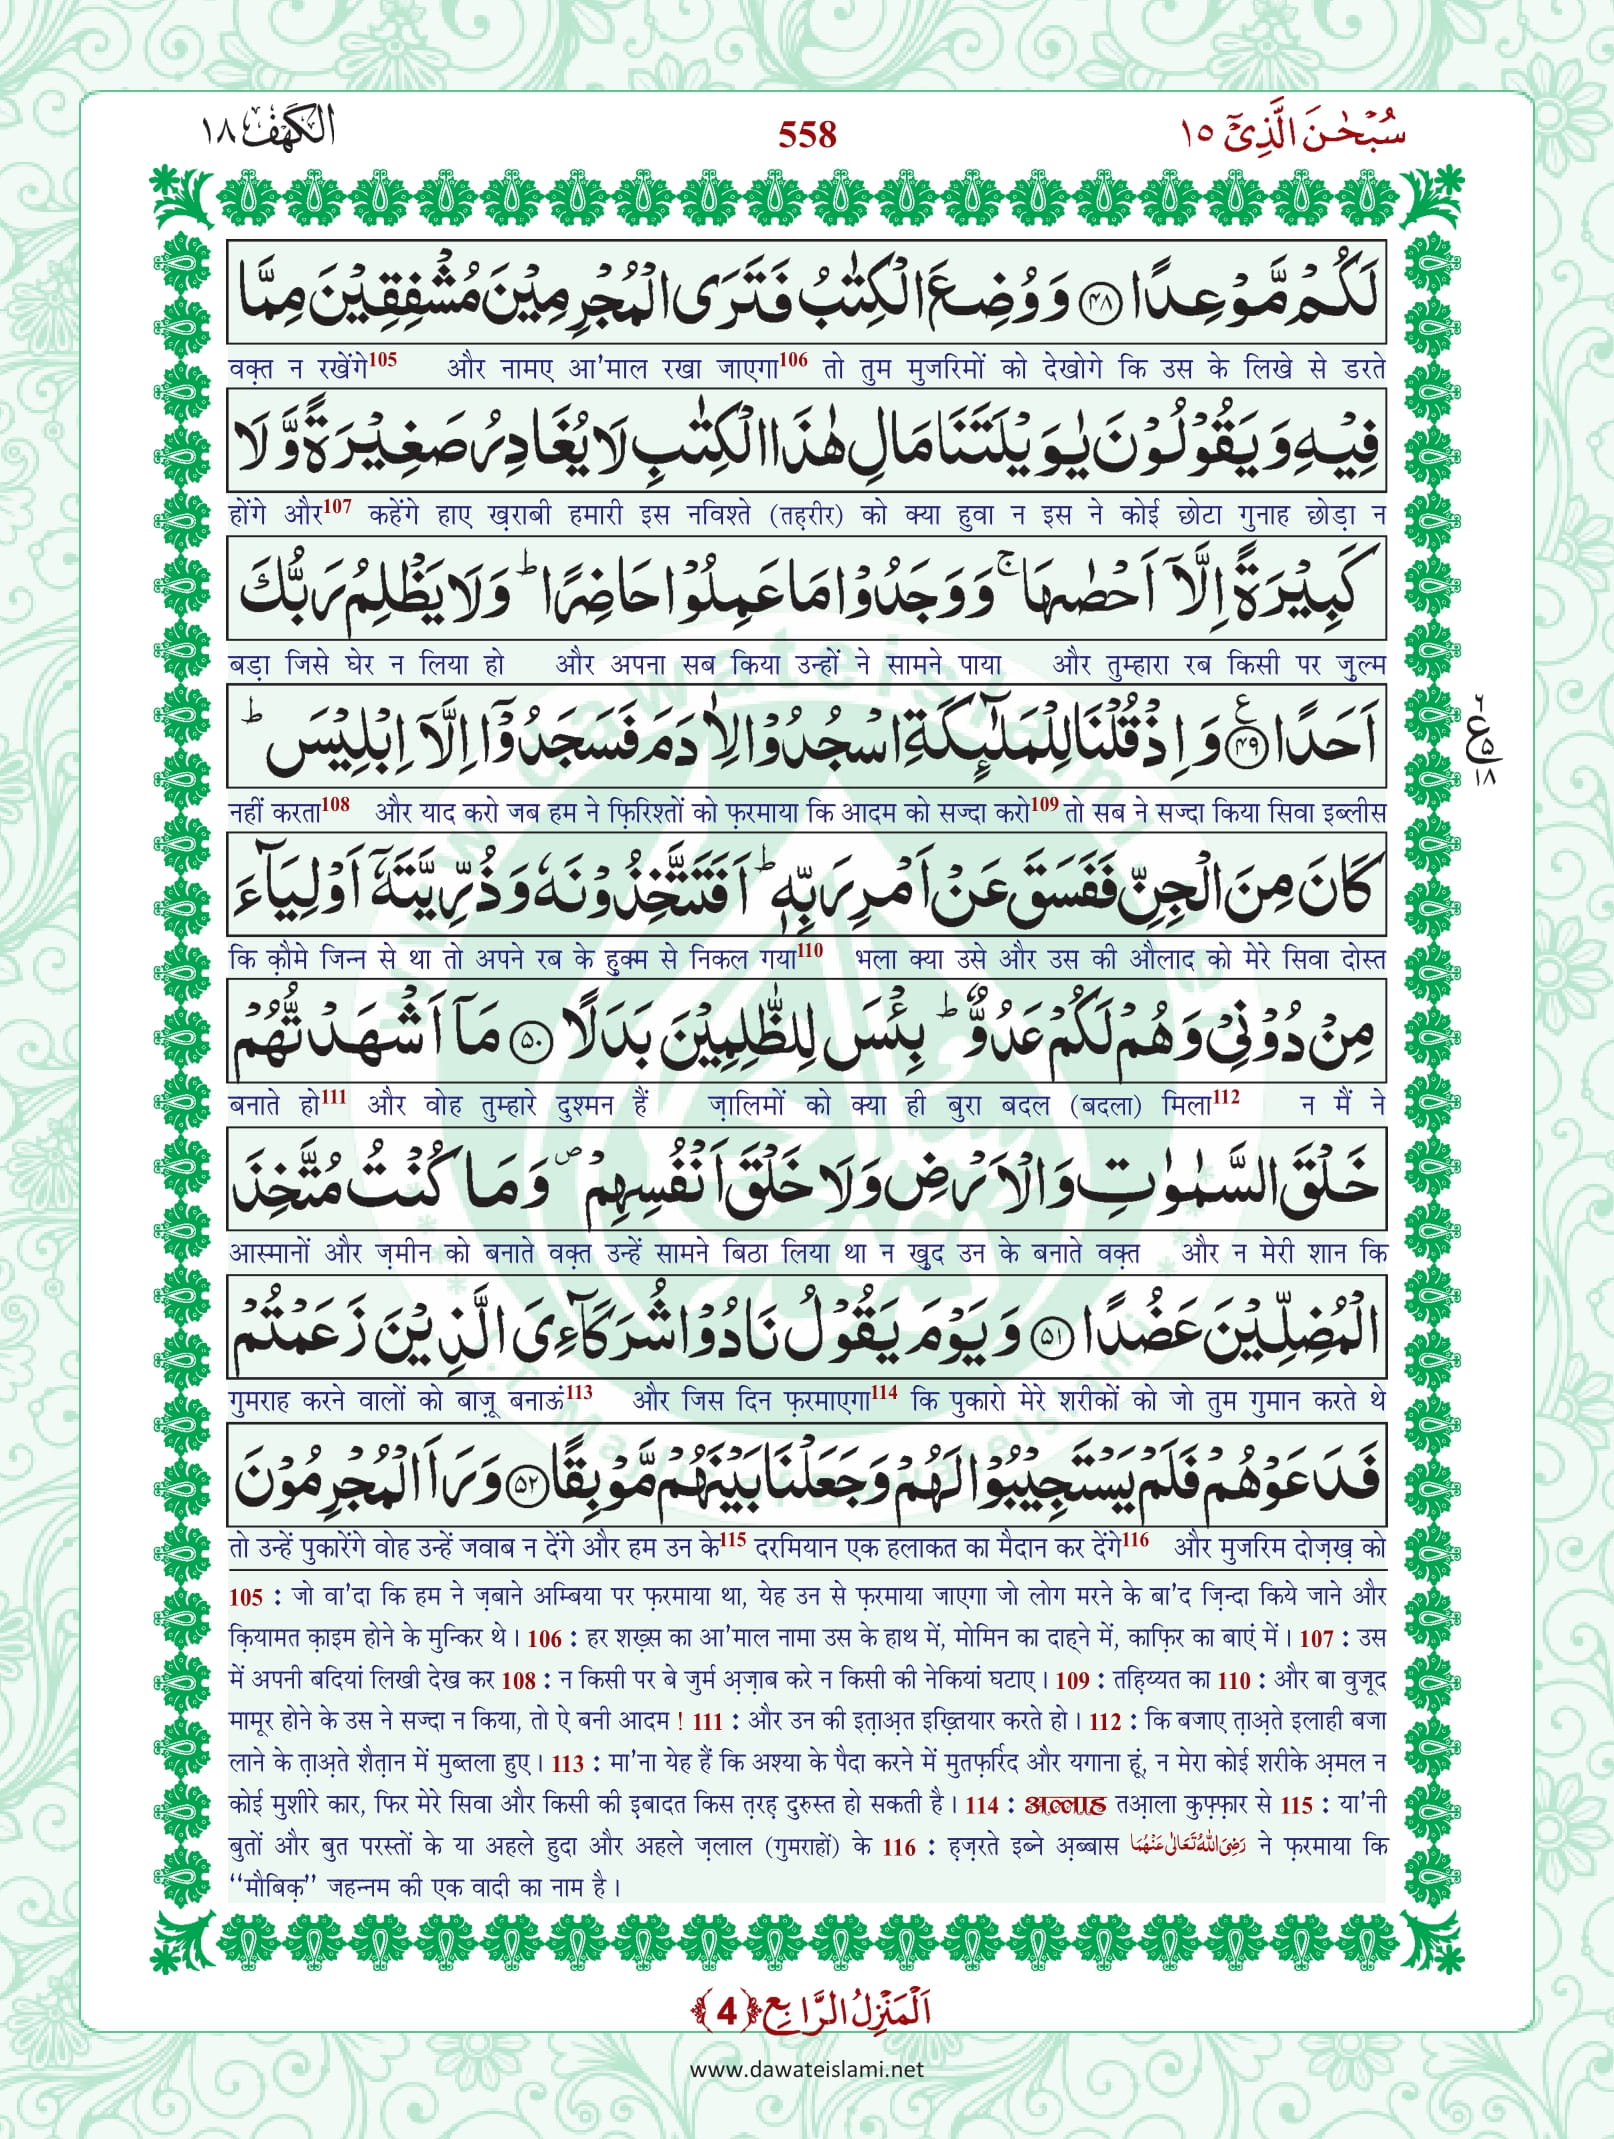 سُبْحٰنَ الَّذِیْۤ ١٥
558
الكَهْف ١٨
لَكُمْ مَّوْعِدًا ﴿۴۸﴾ وَ وُضِعَ الْكِتٰبُ فَتَرَى الْمُجْرِمِیْنَ مُشْفِقِیْنَ مِمَّا
वक़्त न रखेंगे105 और नामए आ'माल रखा जाएगा106 तो तुम मुजरिमों को देखोगे कि उस के लिखे से डरते
فِیْهِ وَ یَقُوْلُوْنَ یٰوَیْلَتَنَا مَالِ هٰذَا الْكِتٰبِ لَا یُغَادِرُ صَغِیْرَةً وَّ لَا
होंगे और107 कहेंगे हाए ख़राबी हमारी इस नविश्ते (तह़रीर) को क्या हुवा न इस ने कोई छोटा गुनाह छोड़ा न
كَبِیْرَةً اِلَّاۤ اَحْصٰىهَا ۚ وَ وَجَدُوْا مَا عَمِلُوْا حَاضِرًا ؕ وَ لَا یَظْلِمُ رَبُّكَ
बड़ा जिसे घेर न लिया हो और अपना सब किया उन्हों ने सामने पाया और तुम्हारा रब किसी पर ज़ुल्म
اَحَدًا ﴿۴۹﴾ ع وَ اِذْ قُلْنَا لِلْمَلٰٓىٕكَةِ اسْجُدُوْا لِاٰدَمَ فَسَجَدُوْۤا اِلَّاۤ اِبْلِیْسَ ؕ
٢ ع ۵ ١٨
नहीं करता108 और याद करो जब हम ने फ़िरिश्तों को फ़रमाया कि आदम को सज्दा करो109 तो सब ने सज्दा किया सिवा इब्लीस
كَانَ مِنَ الْجِنِّ فَفَسَقَ عَنْ اَمْرِ رَبِّهٖ ؕ اَفَتَتَّخِذُوْنَهٗ وَ ذُرِّیَّتَهٗۤ اَوْلِیَآءَ
कि क़ौमे जिन्न से था तो अपने रब के हुक्म से निकल गया110 भला क्या उसे और उस की औलाद को मेरे सिवा दोस्त
مِنْ دُوْنِیْ وَ هُمْ لَكُمْ عَدُوٌّ ؕ بِئْسَ لِلظّٰلِمِیْنَ بَدَلًا ﴿۵۰﴾ مَاۤ اَشْهَدْتُّهُمْ
बनाते हो111 और वोह तुम्हारे दुश्मन हैं ज़ालिमों को क्या ही बुरा बदल (बदला) मिला112 न मैं ने
خَلْقَ السَّمٰوٰتِ وَ الْاَرْضِ وَ لَا خَلْقَ اَنْفُسِهِمْ ۪ وَ مَا كُنْتُ مُتَّخِذَ
आस्मानों और ज़मीन को बनाते वक़्त उन्हें सामने बिठा लिया था न ख़ुद उन के बनाते वक़्त और न मेरी शान कि
الْمُضِلِّیْنَ عَضُدًا ﴿۵۱﴾ وَ یَوْمَ یَقُوْلُ نَادُوْا شُرَكَآءِیَ الَّذِیْنَ زَعَمْتُمْ
गुमराह करने वालों को बाज़ू बनाऊं113 और जिस दिन फ़रमाएगा114 कि पुकारो मेरे शरीकों को जो तुम गुमान करते थे
فَدَعَوْهُمْ فَلَمْ یَسْتَجِیْبُوْا لَهُمْ وَ جَعَلْنَا بَیْنَهُمْ مَّوْبِقًا ﴿۵۲﴾ وَ رَاَ الْمُجْرِمُوْنَ
तो उन्हें पुकारेंगे वोह उन्हें जवाब न देंगे और हम उन के115 दरमियान एक हलाकत का मैदान कर देंगे116 और मुजरिम दोज़ख़ को
105 : जो वा'दा कि हम ने ज़बाने अम्बिया पर फ़रमाया था, येह उन से फ़रमाया जाएगा जो लोग मरने के बा'द ज़िन्दा किये जाने और
क़ियामत क़ाइम होने के मुन्किर थे। 106 : हर शख़्स का आ'माल नामा उस के हाथ में, मोमिन का दाह्ने में, काफ़िर का बाएं में। 107 : उस
में अपनी बदियां लिखी देख कर 108 : न किसी पर बे जुर्म अ़ज़ाब करे न किसी की नेकियां घटाए। 109 : तहि़य्यत का 110 : और बा वुजूद
मामूर होने के उस ने सज्दा न किया, तो ऐ बनी आदम ! 111 : और उन की इत़ाअ़त इख़्तियार करते हो। 112 : कि बजाए त़ाअ़ते इलाही बजा
लाने के त़ाअ़ते शैत़ान में मुब्तला हुए। 113 : मा'ना येह हैं कि अश्या के पैदा करने में मुतफ़र्रिद और यगाना हूं, न मेरा कोई शरीके अ़मल न
कोई मुशीरे कार, फिर मेरे सिवा और किसी की इबादत किस त़रह़ दुरुस्त हो सकती है। 114 : अल्लाह तआ़ला कुफ़्फ़ार से 115 : या'नी
बुतों और बुत परस्तों के या अहले हुदा और अहले ज़लाल (गुमराहों) के 116 : ह़ज़रते इब्ने अ़ब्बास رَضِیَ اللهُ تَعَالٰی عَنْهُمَا ने फ़रमाया कि
“मौबिक़” जहन्नम की एक वादी का नाम है।
اَلْمَنْزِلُ الرَّابِع ﴿4﴾
www.dawateislami.net